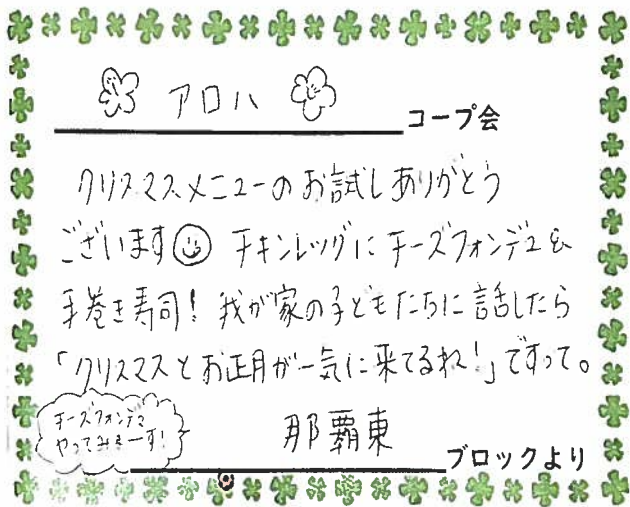 アロハ コープ会
クリスマスメニューのお試しありがとう
ございます☺ チキンレッグにチーズフォンデュ&
手巻き寿司! 我が家の子どもたちに話したら
「クリスマスとお正月が一気に来てるね!」ですって。
チーズフォンデュ
やってみまーす!
那覇東 ブロックより